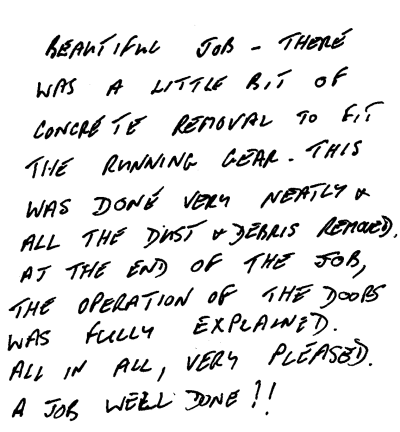 BEAUTIFUL JOB - THERE
WAS A LITTLE BIT OF
CONCRETE REMOVAL TO FIT
THE RUNNING GEAR. THIS
WAS DONE VERY NEATLY &
ALL THE DUST & DEBRIS REMOVED.
AT THE END OF THE JOB,
THE OPERATION OF THE DOORS
WAS FULLY EXPLAINED.
ALL IN ALL, VERY PLEASED.
A JOB WELL DONE!!